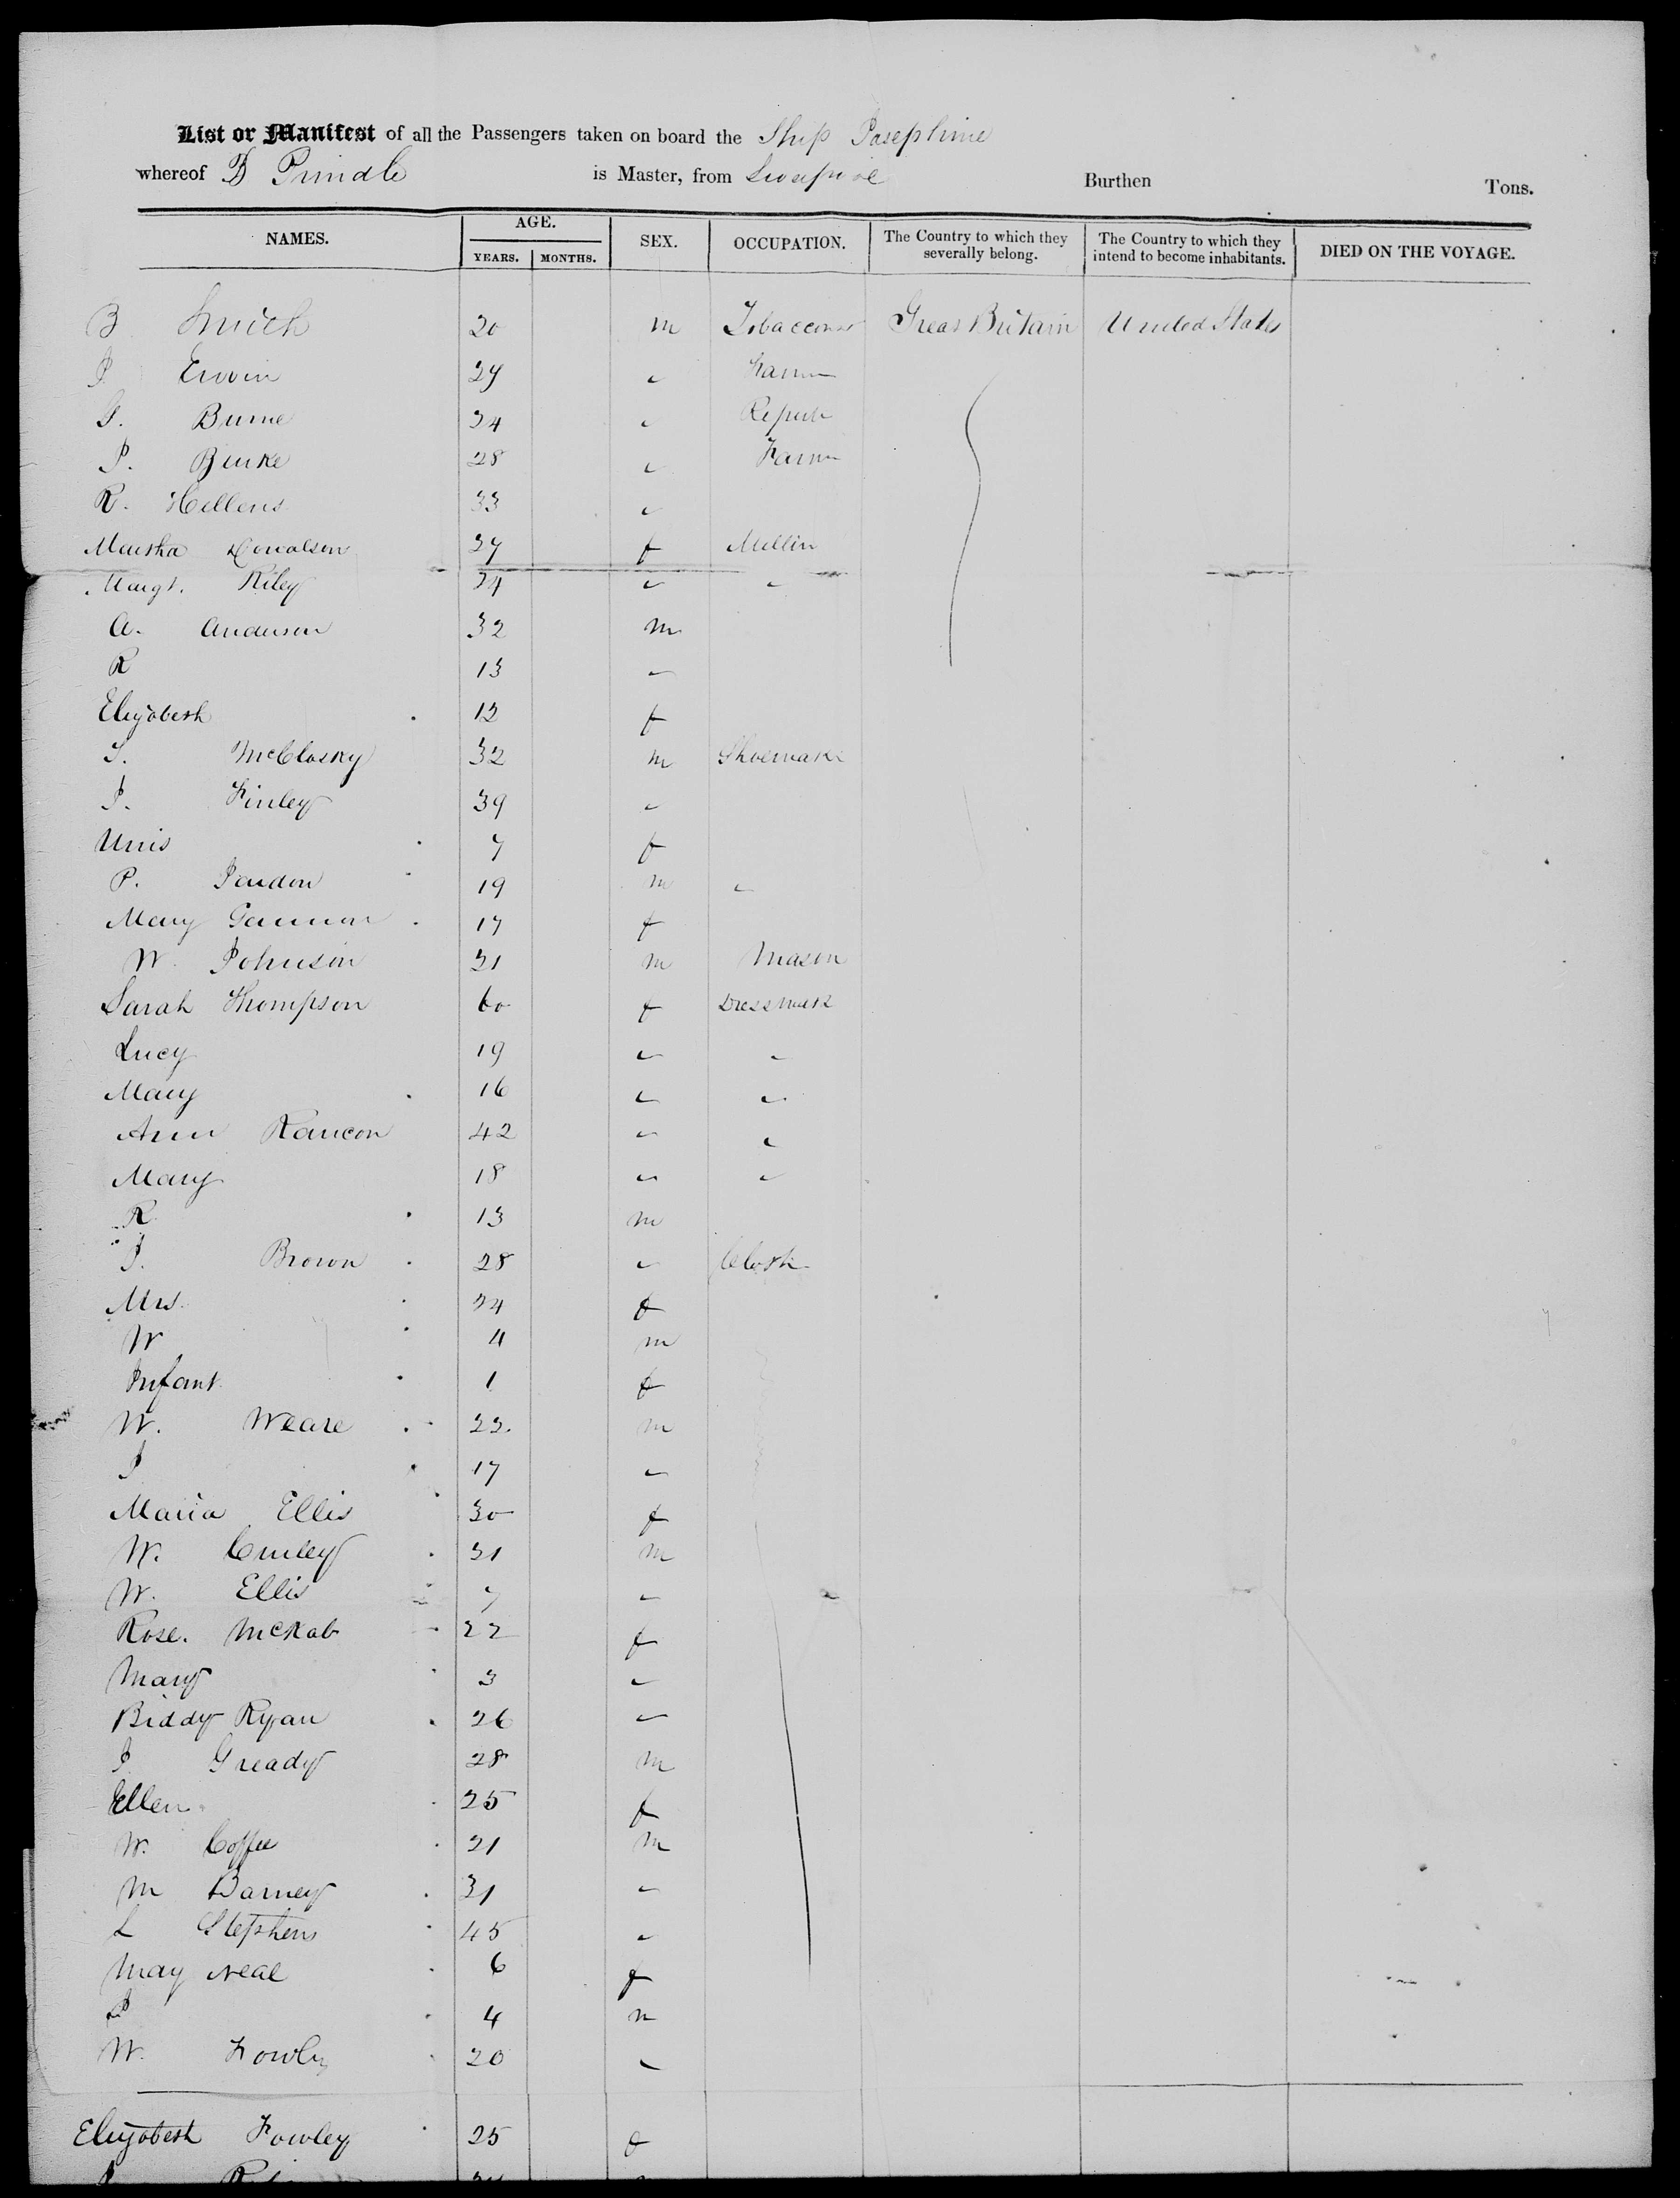 List or Manifest of all the Passengers taken on board the Ship Josephine
whereof D Prindle is Master, from Liverpool Burthen Tons.
NAMES. AGE. YEARS. MONTHS. SEX. OCCUPATION. The Country to which they severally belong. The Country to which they intend to become inhabitants. DIED ON THE VOYAGE.
B Smith 20 m Tobacconist Great Britain United States
J Erwin 27 " Farmer
G. Burne 24 "
P. Burke 28 " Farmer
R. Hellens 33 "
Martha Donalson 27 f Millin
Margt. Riley 24 " "
A. Anderson 32 m
R 13 "
Elizabeth 12 f
S. McClosky 32 m Shoemake
J. Finley 39 "
Unis 7 f
P. 19 m "
Mary Gannon 17 f
W. Johnson 31 m Mason
Sarah Thompson 60 f Dressmak
Lucy 19 " "
Mary 16 " "
Ann Rancon 42 " "
Mary 18 " "
R 13 m
J. Brown 28 "
Mrs. 24 f
W 4 m
Infant 1 f
W. Weare 22 m
J 17 "
Maria Ellis 30 f
W. Curley 31 m
W. Ellis 7 "
Rose. McKab 22 f
Mary 3 "
Biddy Ryan 26 "
J Gready 28 m
Ellen 25 f
W. Coffee 21 m
M Barney 31 "
L Stephens 45 "
May Neal 6 f
P 4 m
W. Fowley 20 "
Elizabeth Fowley 25 f